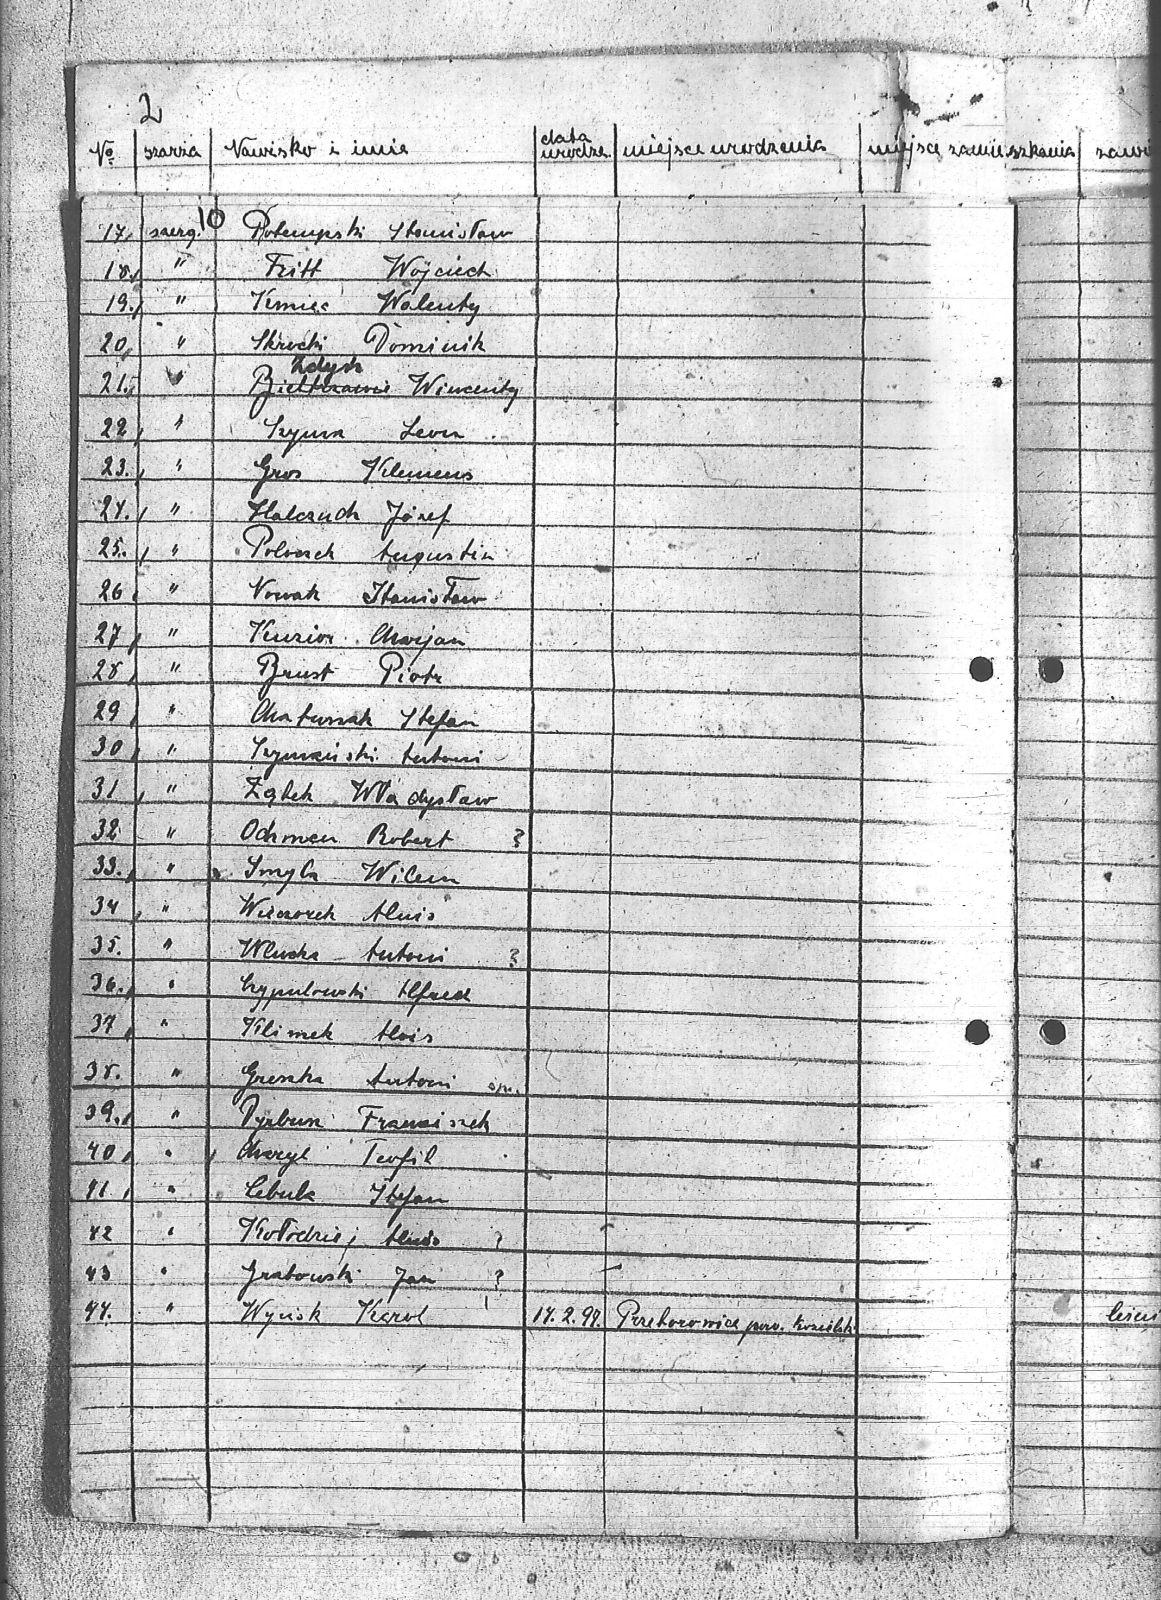 2
No szarża Nazwisko i imię data urodze. miejsce urodzenia miejsce zamieszkania zawo
17. szereg. 10 Potempski Stanisław
18. " Fritt Wojciech
19. " Kmieć Walenty
20. " Skrocki Dominik
Zdysk
21. " Wincenty
22. " Szyma Leon
23. " Gros Klemens
24. " Halczuch Józef
25. " Poloczek Augustin
26. " Nowak Stanisław
27. " Kuzior Marjan
28. " Brust Piotr
29. " Matuszak Stefan
30. " Szymański Antoni
31. " Ząbek Władysław
32. " Ochman Robert ?
33. " Smyla Wilem
34. " Wieczorek Alois
35. " Wlucka Antoni ?
36. " Szypulowski Alfred
37. " Klimek Alois
38. " Greszka Antoni
39. " Pyrbusz Franciszek
40. " Teofil
41. " Cebula Stefan
42. " Kołodziej Alois ?
43. " Grabowski Jan ?
44. " Wycisk Karol 14.2.97. pow.